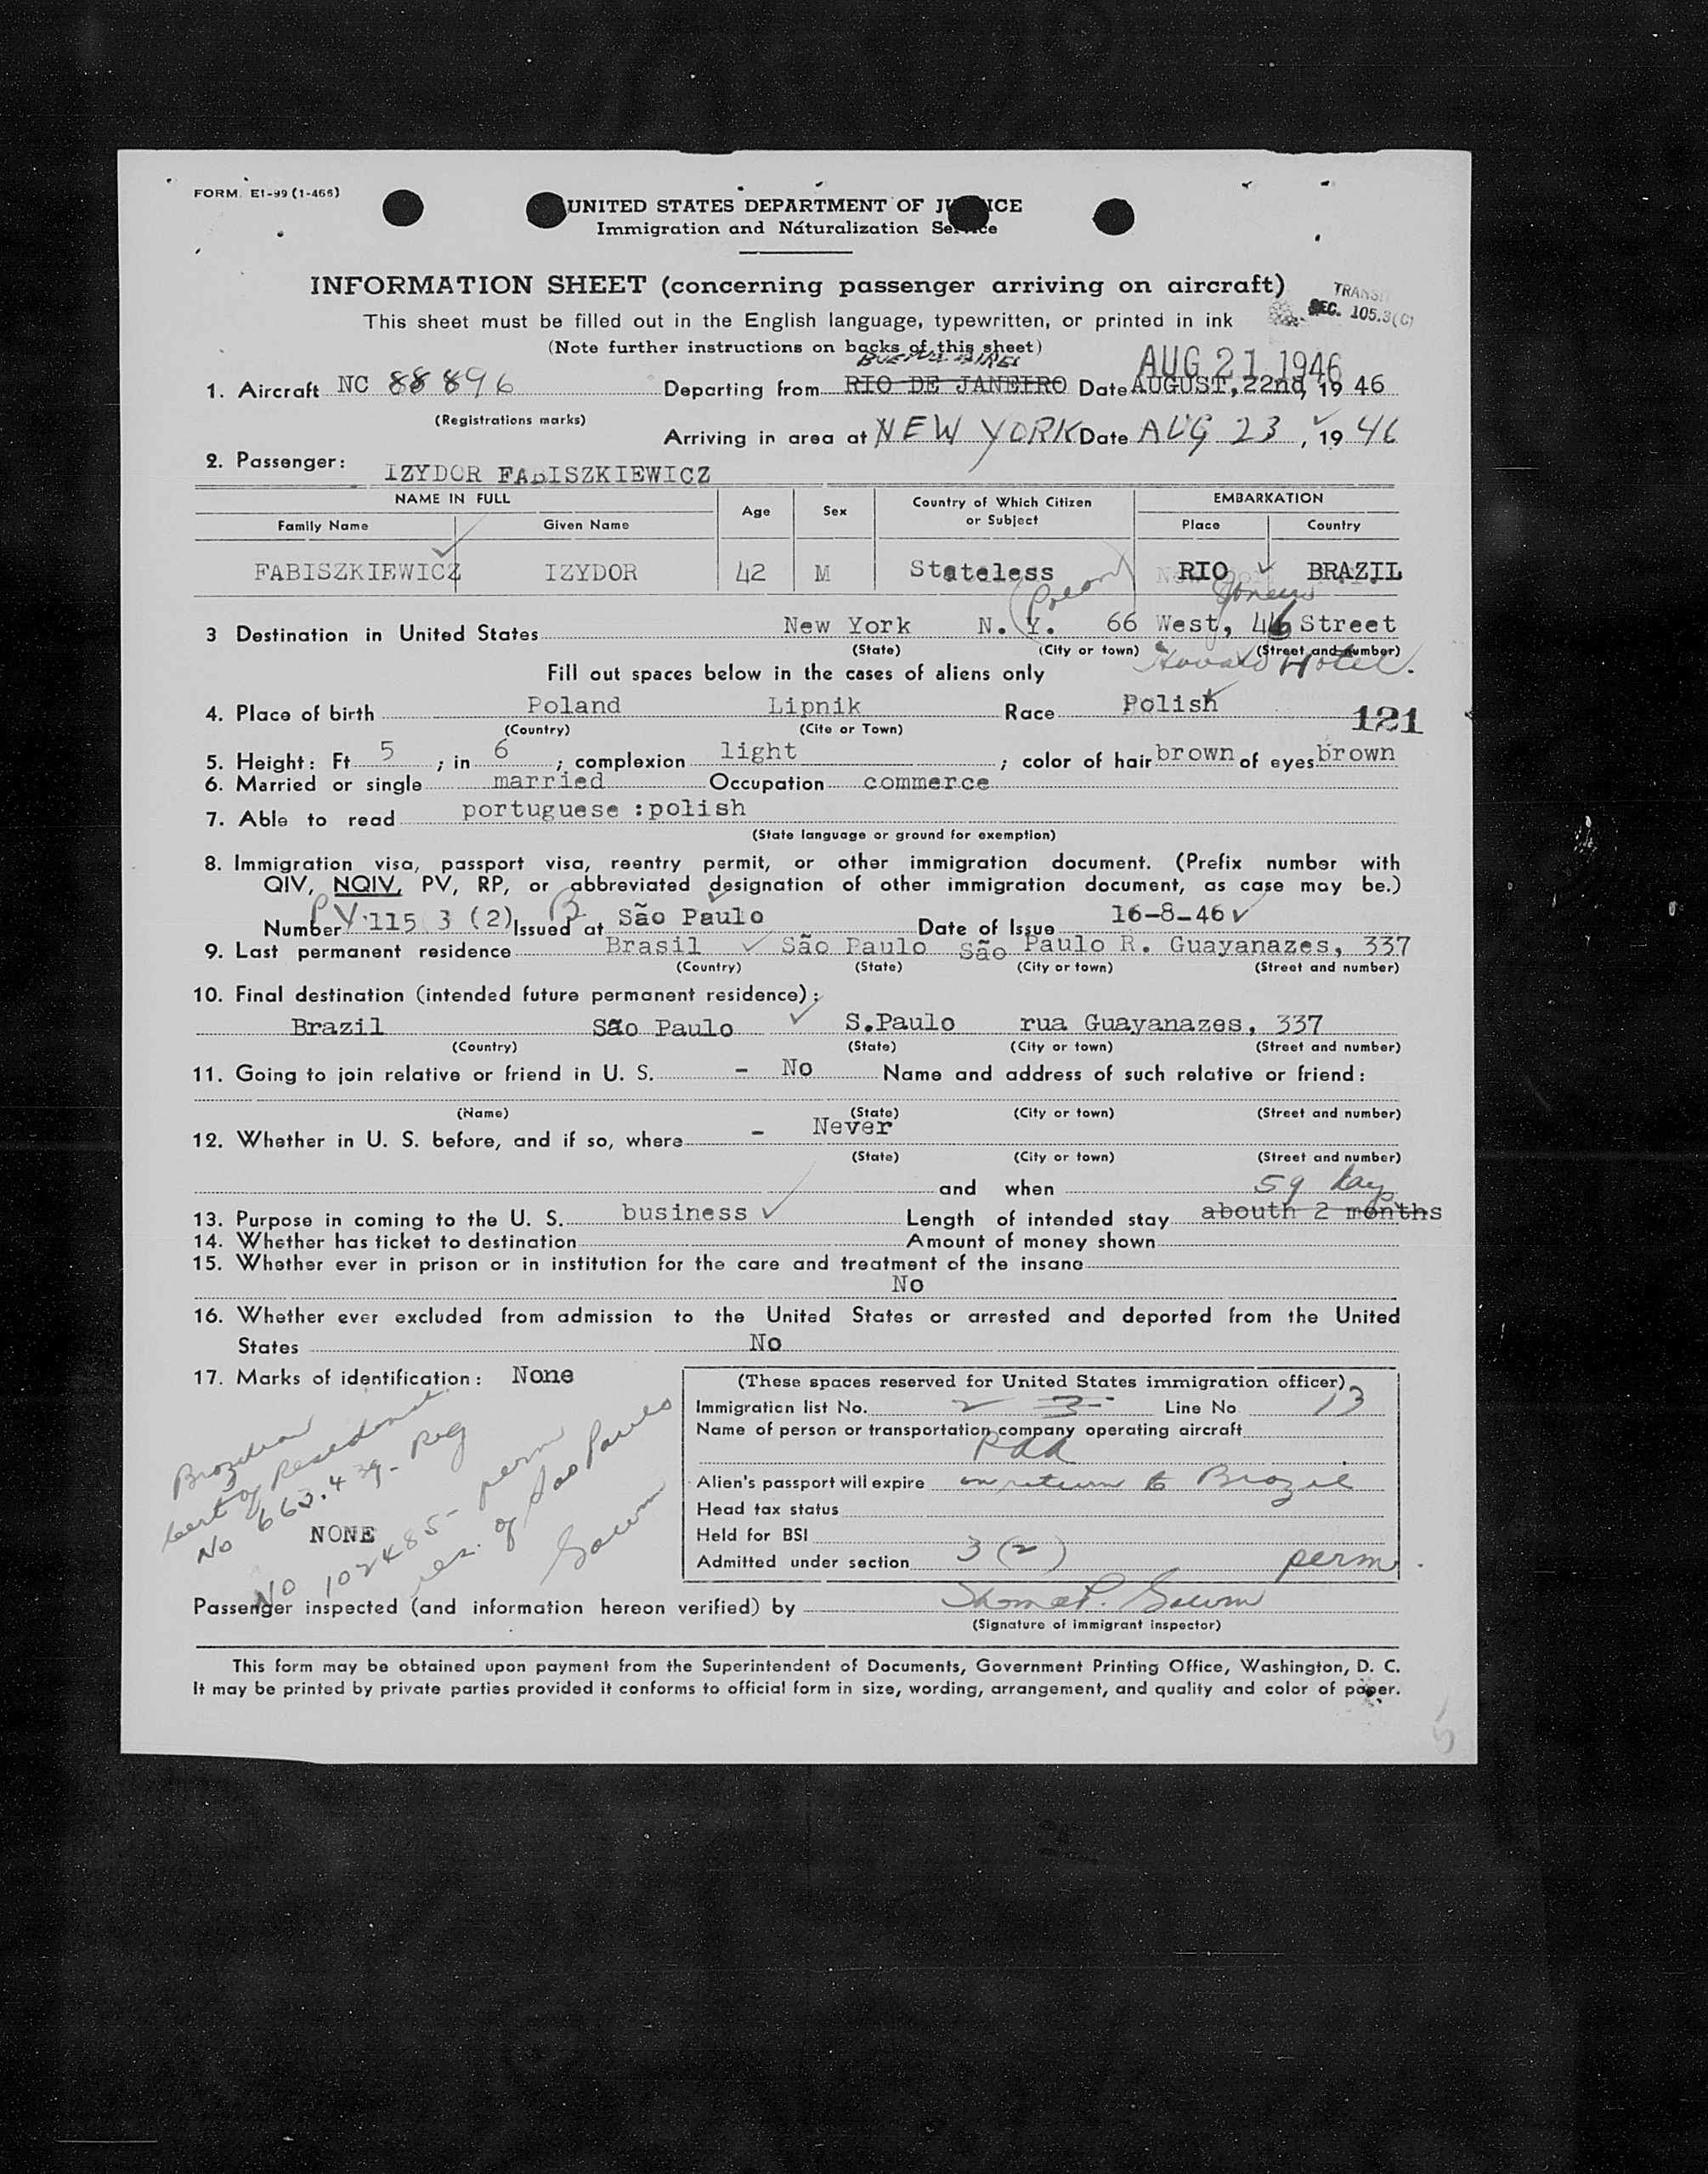 FORM E1-99 (1-466)
UNITED STATES DEPARTMENT OF JUSTICE
Immigration and Naturalization Service
INFORMATION SHEET (concerning passenger arriving on aircraft)
TRANSIT
SEC. 105.3(C)
This sheet must be filled out in the English language, typewritten, or printed in ink
(Note further instructions on backs of this sheet)
BUENOS AIRES
AUG 21 1946
1. Aircraft NC 88896 Departing from RIO DE JANEIRO Date AUGUST, 22nd, 19 46
(Registrations marks)
Arriving in area at NEW YORK Date AUG 23, 19 46
2. Passenger: IZYDOR FABISZKIEWICZ
NAME IN FULL Age Sex Country of Which Citizen or Subject EMBARKATION
Family Name Given Name Place Country
FABISZKIEWICZ IZYDOR 42 M Stateless RIO BRAZIL
(Poland)
3 Destination in United States New York N. Y. 66 West, 46 Street
(State) (City or town) (Street and number)
Hotel.
Fill out spaces below in the cases of aliens only
4. Place of birth Poland Lipnik Race Polish 121
(Country) (Cite or Town)
5. Height: Ft 5 ; in 6 ; complexion light ; color of hair brown of eyes brown
6. Married or single married Occupation commerce
7. Able to read portuguese :polish
(State language or ground for exemption)
8. Immigration visa, passport visa, reentry permit, or other immigration document. (Prefix number with
QIV, NQIV, PV, RP, or abbreviated designation of other immigration document, as case may be.)
Number PV 115 3 (2) Issued at São Paulo Date of Issue 16-8-46
9. Last permanent residence Brasil São Paulo São Paulo R. Guayanazes, 337
(Country) (State) (City or town) (Street and number)
10. Final destination (intended future permanent residence):
Brazil São Paulo S.Paulo rua Guayanazes, 337
(Country) (State) (City or town) (Street and number)
11. Going to join relative or friend in U. S. - No Name and address of such relative or friend:
(Name) (State) (City or town) (Street and number)
12. Whether in U. S. before, and if so, where - Never
(State) (City or town) (Street and number)
and when
59 days
13. Purpose in coming to the U. S. business Length of intended stay abouth 2 months
14. Whether has ticket to destination Amount of money shown
15. Whether ever in prison or in institution for the care and treatment of the insane
No
16. Whether ever excluded from admission to the United States or arrested and deported from the United
States No
17. Marks of identification: None
Brazilian
Cert of Residence
No 663.439- Reg
NONE
No 102485- perm
res. of Sao Paulo
(These spaces reserved for United States immigration officer)
Immigration list No. 2 3 Line No 13
Name of person or transportation company operating aircraft
PAA
Alien's passport will expire on return to Brazil
Head tax status
Held for BSI
Admitted under section 3 (2) perm.
Passenger inspected (and information hereon verified) by
(Signature of immigrant inspector)
This form may be obtained upon payment from the Superintendent of Documents, Government Printing Office, Washington, D. C.
It may be printed by private parties provided it conforms to official form in size, wording, arrangement, and quality and color of paper.
5